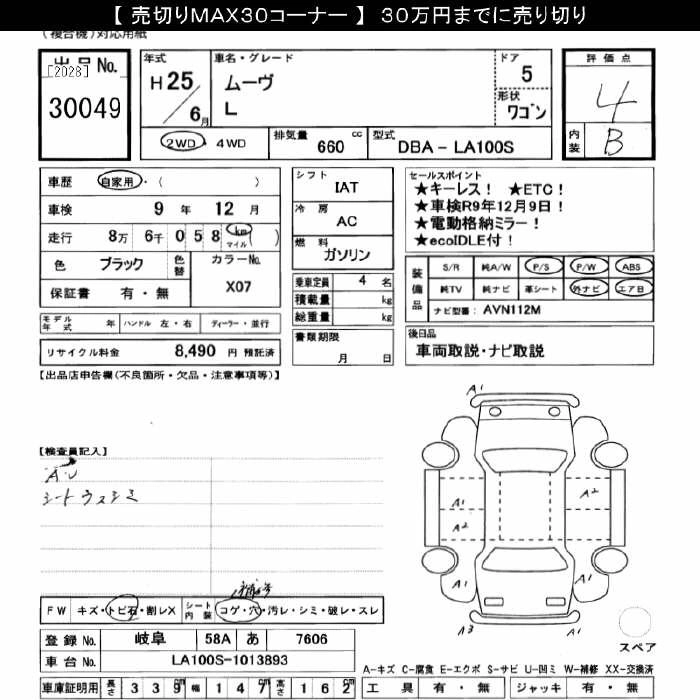 【 売切りMAX30コーナー 】 30万円までに売り切り
(複合機)対応用紙
出品No.
[2028]
30049
年式
H25/6月
車名・グレード
ムーヴ
L
ドア
5
形状
ワゴン
評価点
4
内装
B
2WD・4WD
排気量 660 cc
型式 DBA - LA100S
車歴 自家用・( )
車検 9 年 12 月
走行 8万 6千 0 5 8 km マイル ( )
色 ブラック
色替
カラーNo.
X07
保証書 有・無
シフト
IAT
冷房
AC
燃料
ガソリン
乗車定員 4 名
積載量 kg
総重量 kg
書類期限
月 日
セールスポイント
★キーレス! ★ETC!
★車検R9年12月9日!
★電動格納ミラー!
★ecoIDLE付!
装備品
S/R 純A/W P/S P/W ABS
純TV 純ナビ 革シート 外ナビ エアB
ナビ型番: AVN112M
モデル年式 年 ハンドル 左・右 ディーラー・並行
リサイクル料金 8,490 円 預託済
後日品
車両取説・ナビ取説
【出品店申告欄(不良箇所・欠品・注意事項等)】
【検査員記入】
A・U
シートウスシミ
A1
A1
A2
A2
A1
A1
A3
A1
スペア
FW キズ・トビ石・割レX
シート内装 コゲ・穴・汚レ・シミ・破レ・スレ
登録No. 岐阜 58A あ 7606
車台No. LA100S-1013893
車庫証明用 長さ 3 3 9 cm 幅 1 4 7 cm 高さ 1 6 2 cm
A-キズ C-腐食 E-エクボ S-サビ U-凹ミ W-補修 XX-交換済
工具 有・無 ジャッキ 有・無